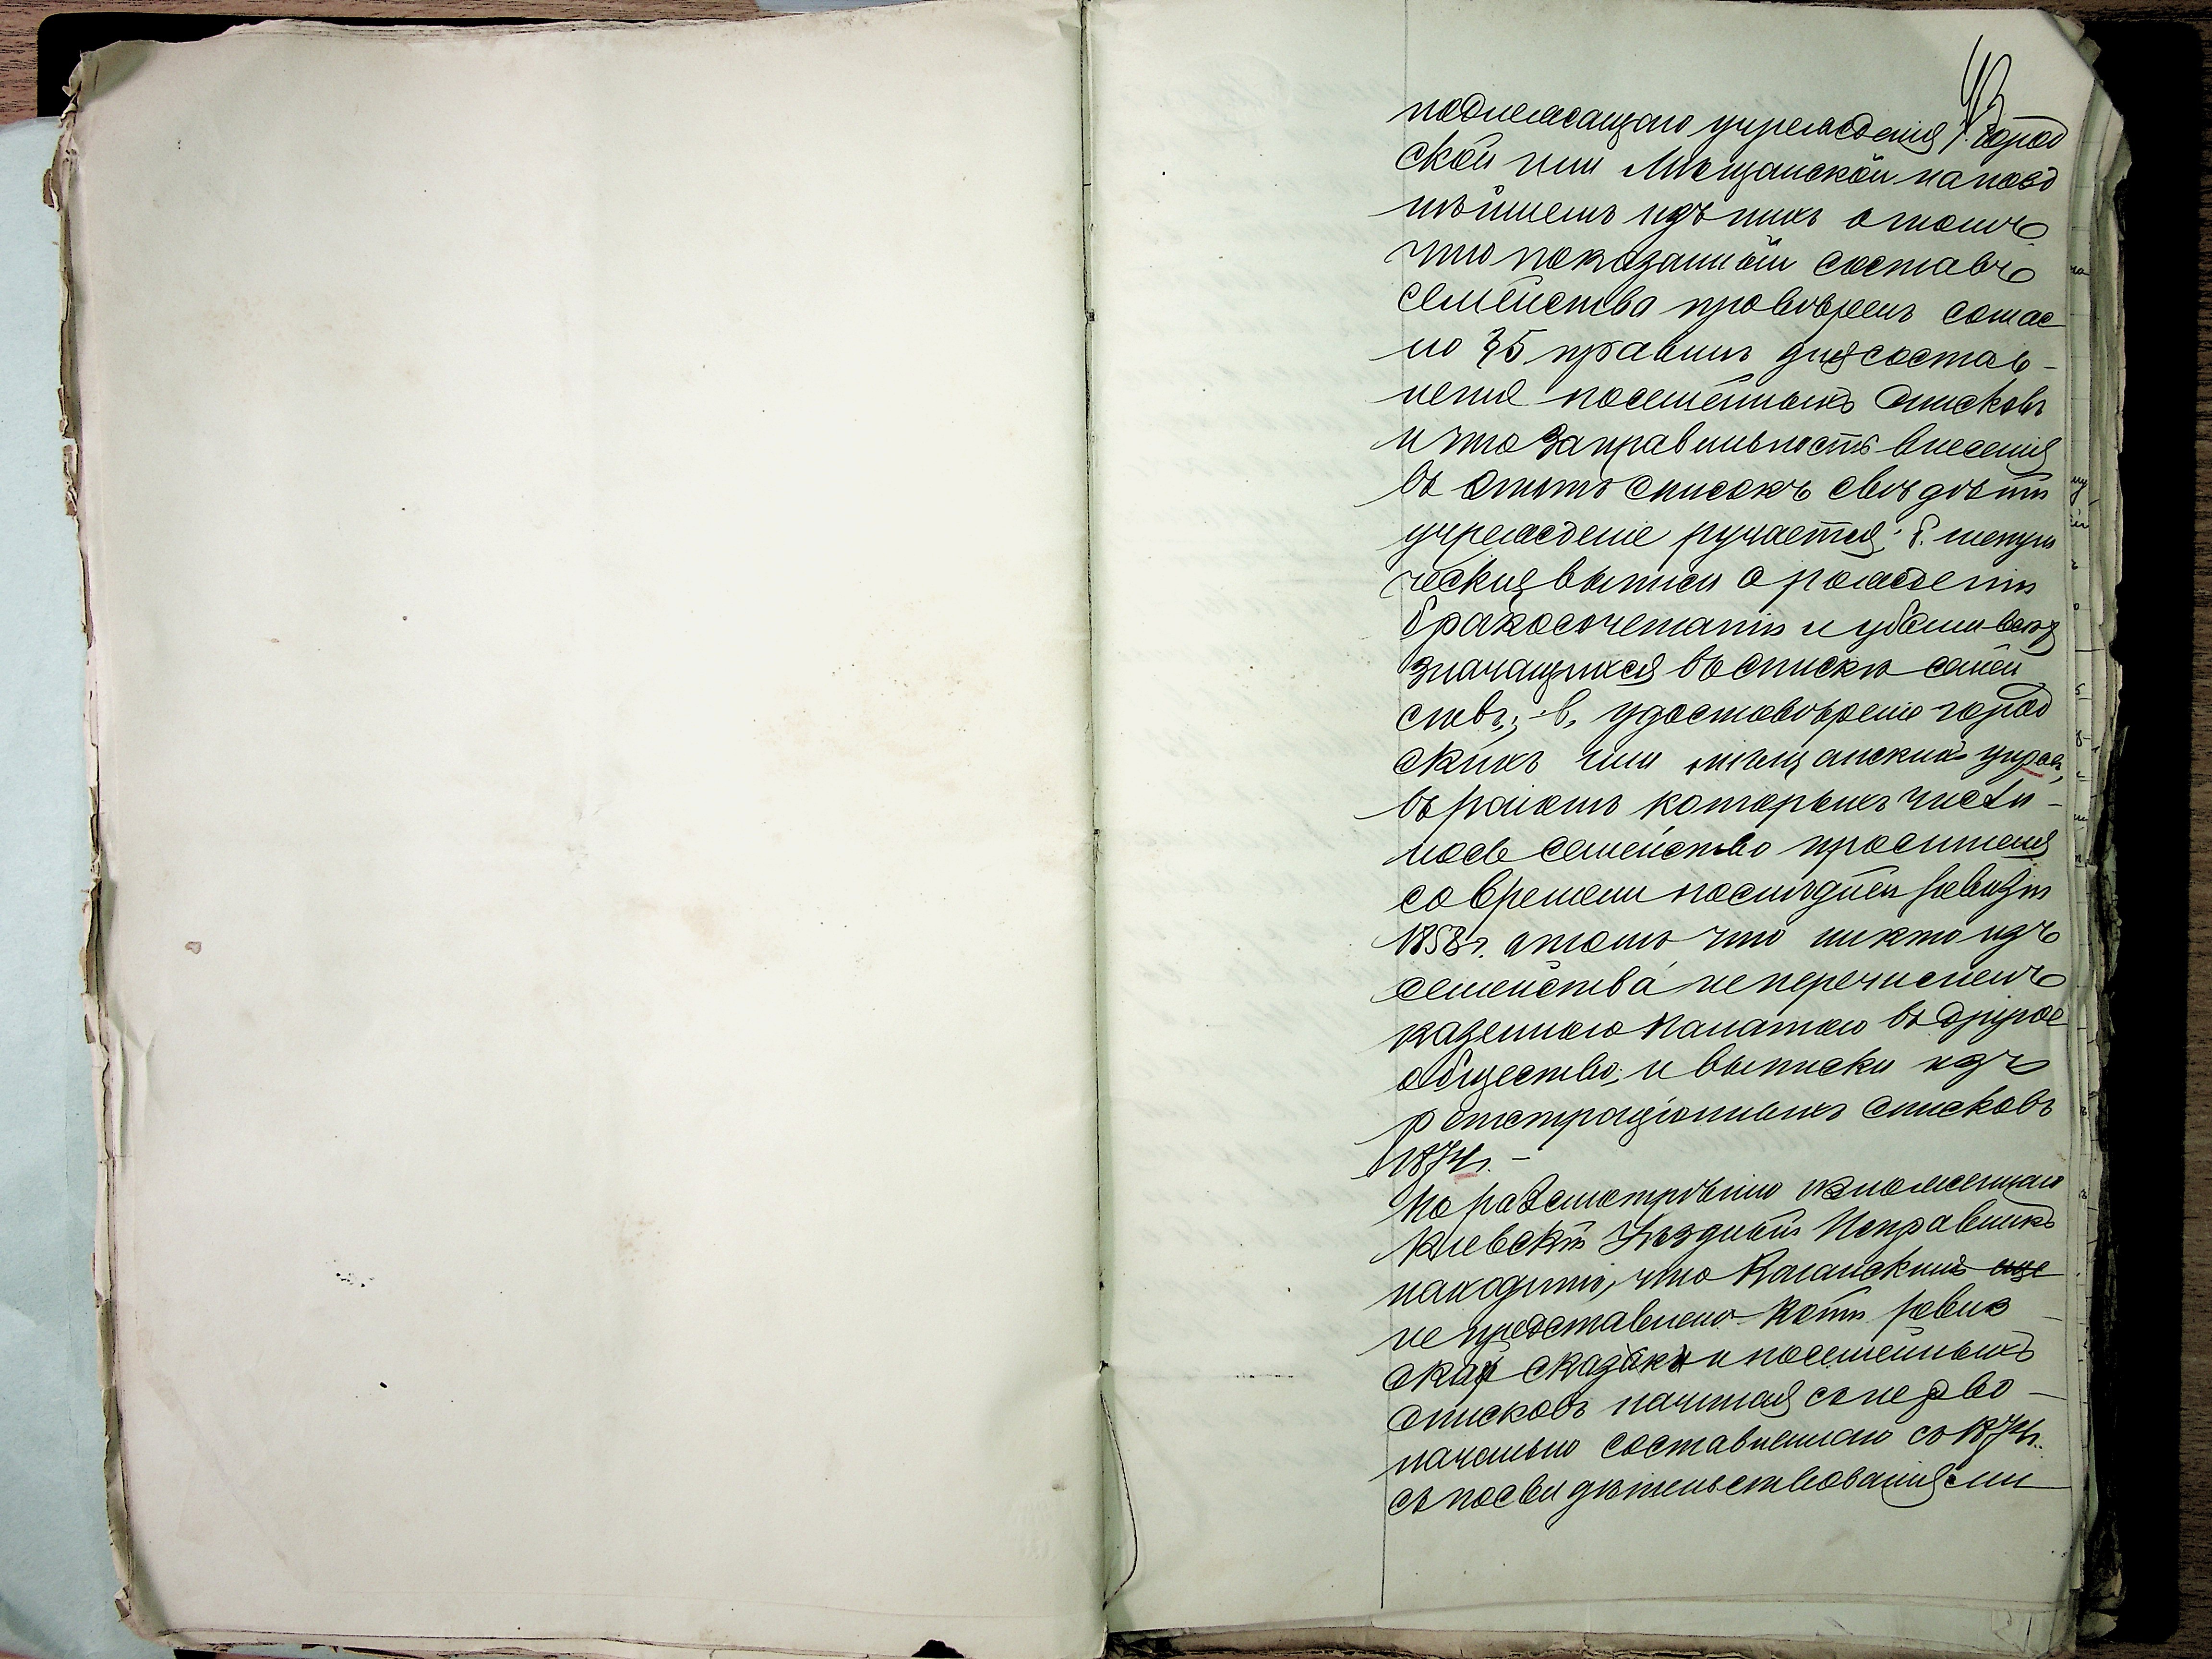 43
подлежащаго учрежденія /: город
ской или Мѣщанской на позд
нѣйшемъ изъ нихъ о томъ
что показанный составъ
семейства провѣренъ соглас
но §5 правилъ для состав-
ленія посемейныхъ списковъ
и что за правильность внесенія
въ этотъ списокъ свѣдѣній
учрежденіе ручается; б. метри
ческія выписи о рожденіи
бракосочетаніи и убыли всѣхъ
значащихся въ списки семей
ствъ; -в, удостовѣреніе город
скихъ или мѣщанскихъ управъ,
въ раіонѣ которыхъ числи-
лось семейство просителя
со времени послѣдней ревизіи
1858 г. о томъ что никто изъ
семейства не перечисленъ
казенною палатою въ другое
общество, и выписки изъ
регистраціонныхъ списковъ
1874 г. -
По разсмотрѣнію изложеннаго
Кіевскій Уѣздный Исправникъ
находитъ, что Каганскимъ еще
не представлено копій ревиз
ской сказки и посемейныхъ
списковъ начиная съ перво-
начально составленнаго съ 1874 г.
съ посвидѣтельствованіями